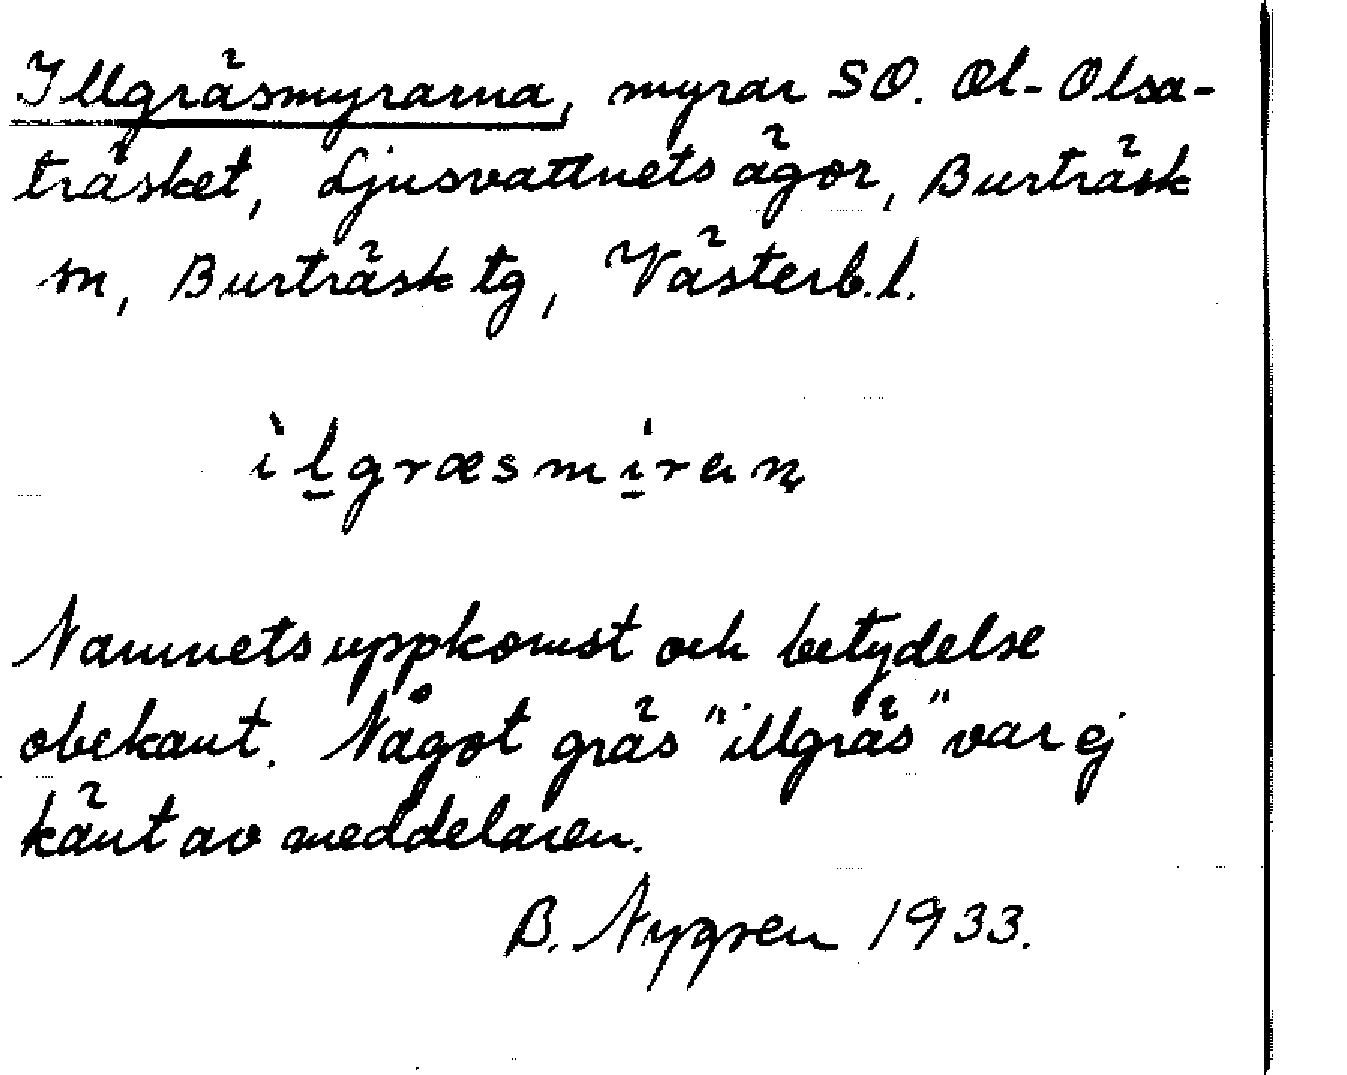 Illgräsmyrarna, myrar SO. Ol-Olsa-
träsket, Ljusvattnets ägor, Burträsk
sn, Burträsk tg, Västerb.l.
ìl̲græsmi̲ran̥
Namnets uppkomst och betydelse
obekant. Något gräs "illgräs" var ej
känt av meddelaren.
B. Nygren 1933.